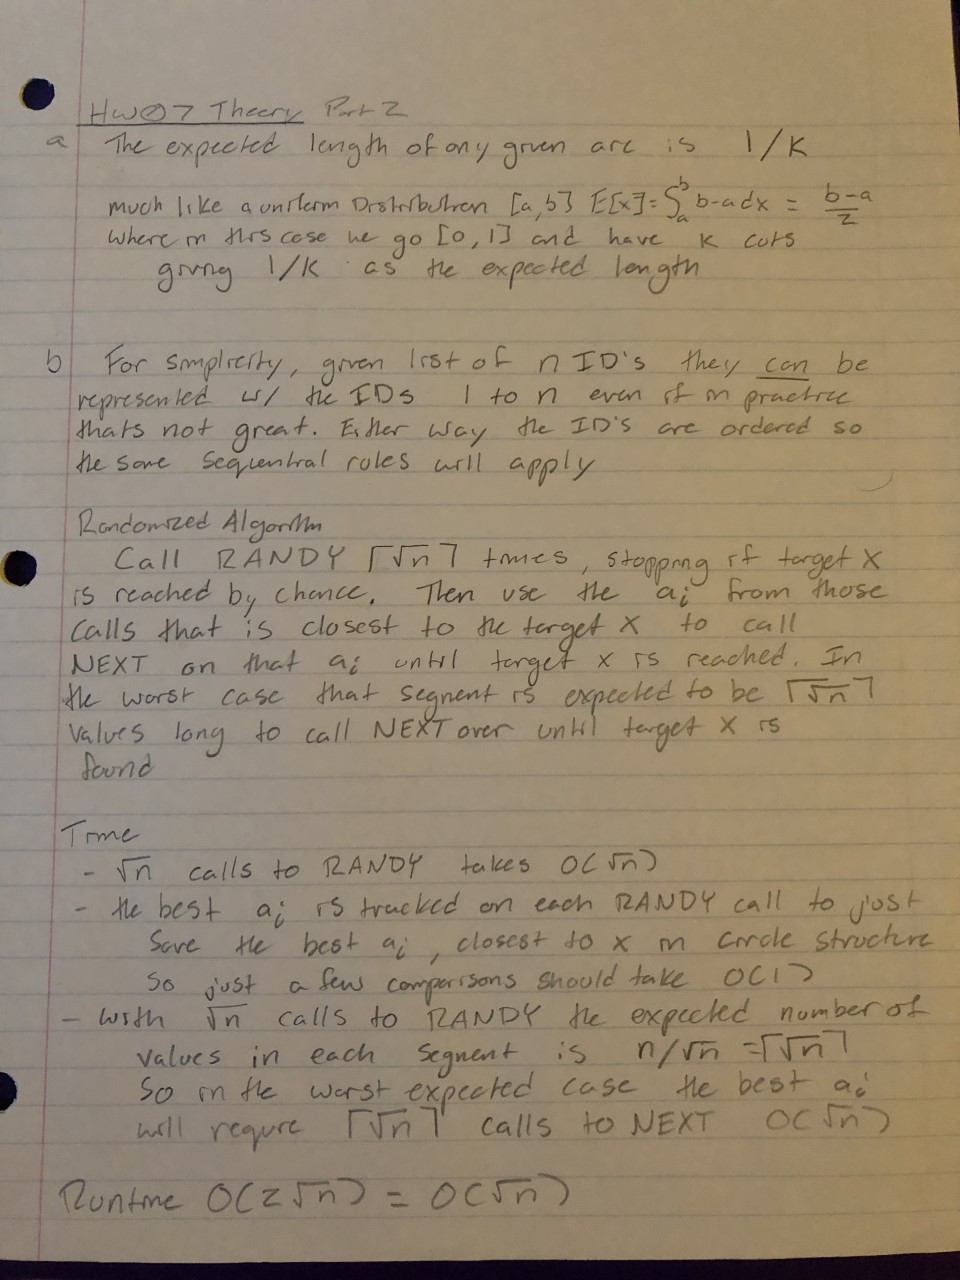 HW07 Theory Part 2
a The expected length of any given arc is 1/K
much like a uniform Distribution [a,b] E[x]=∫ₐᵇ b-a dx = b-a/2
Where in this case we go [0,1] and have K cuts
giving 1/K as the expected length
b For simplicity, given list of n ID's they can be
represented w/ the IDs 1 to n even if in practice
thats not great. Either way the ID's are ordered so
the same sequential rules will apply
Randomized Algorithm
Call RANDY ⌈√n⌉ times, stopping if target X
is reached by chance. Then use the aᵢ from those
calls that is closest to the target X to call
NEXT on that aᵢ until target x is reached. In
the worst case that segment is expected to be ⌈√n⌉
values long to call NEXT over until target X is
found
Time
- √n calls to RANDY takes O(√n)
- the best aᵢ is tracked on each RANDY call to just
Save the best aᵢ, closest to x in circle structure
So just a few comparisons should take O(1)
- With √n calls to RANDY the expected number of
values in each segment is n/√n =⌈√n⌉
So in the worst expected case the best aᵢ
will require ⌈√n⌉ calls to NEXT O(√n)
Runtime O(2√n) = O(√n)